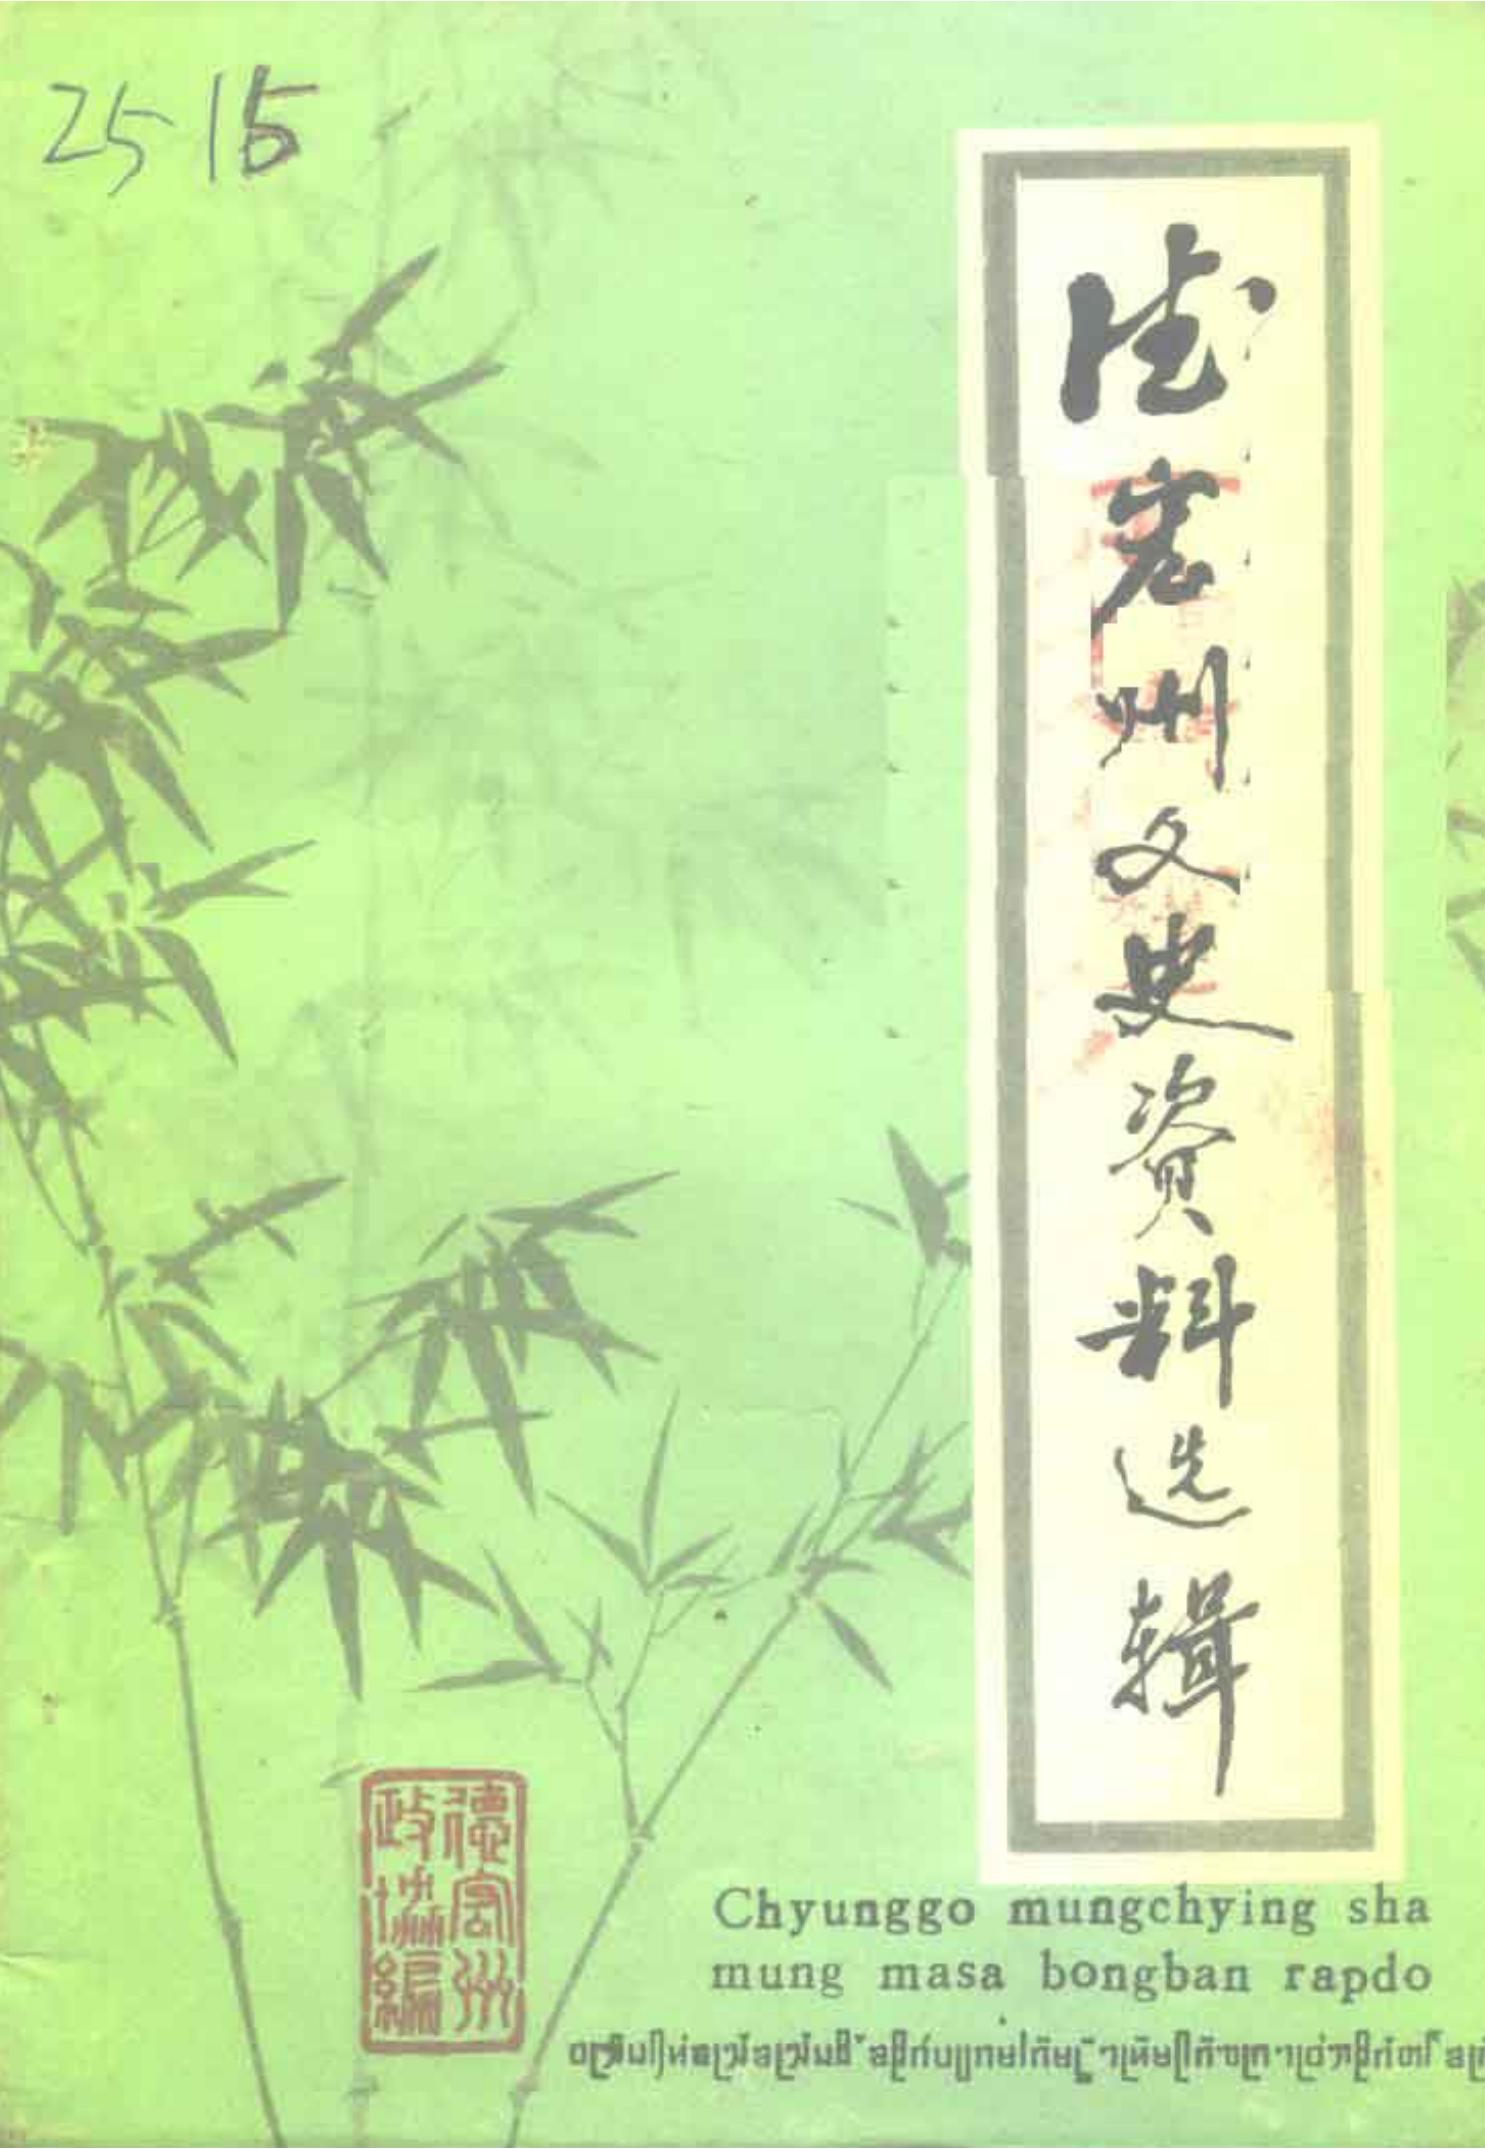 25-15
德宏州文史资料选辑
德宏州
政协编
Chyunggo mungchying sha
mung masa bongban rapdo